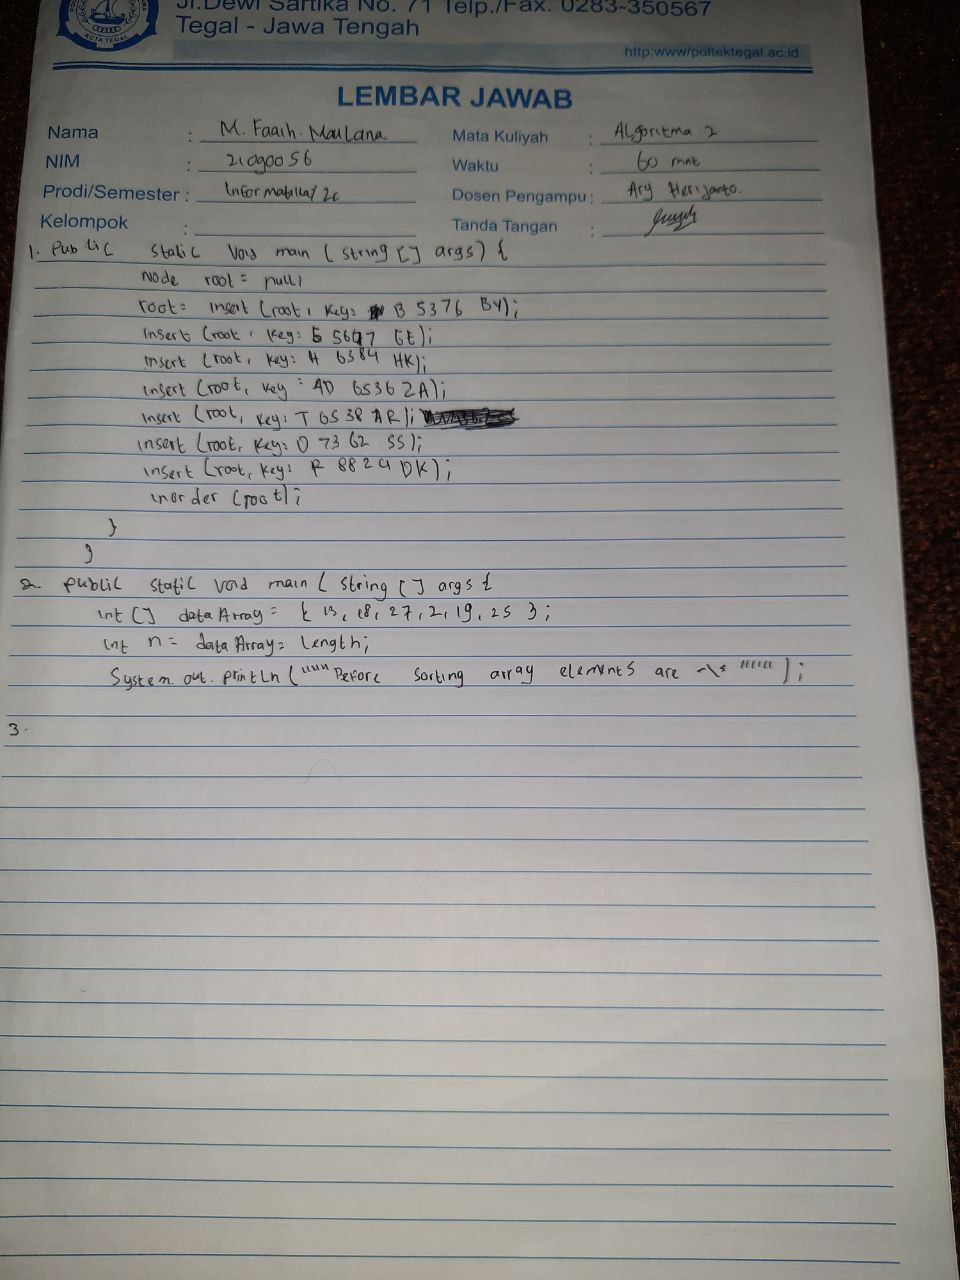 Jl.Dewi Sartika No. 71 Telp./Fax. 0283-350567
Tegal - Jawa Tengah
KOTA TEGAL
http:www/poltektegal.ac.id
LEMBAR JAWAB
Nama : M. Faqih. Maulana
Mata Kuliyah : Algoritma 2
NIM : 21090056
Waktu : 60 mnt
Prodi/Semester : Informatika/ 2c
Dosen Pengampu : Ary Herijanto.
Kelompok :
Tanda Tangan :
1. Public static void main ( string [] args) {
Node root = null;
root = insert (root, key: B 5376 BY);
insert (root, key: 5647 GE);
insert (root, key: H 6384 HK);
insert (root, key: AD 6536 ZA);
insert (root, key: T 6538 AR);
insert (root, key: D 7362 SS);
insert (root, key: R 8824 DK);
inorder (root);
}
}
2 public static void main ( string [] args {
int [] dataArray = { 13, 18, 27, 2, 19, 25 };
int n = dataArray = length;
System. out. println (""""Before sorting array elements are -\s """""");
3.